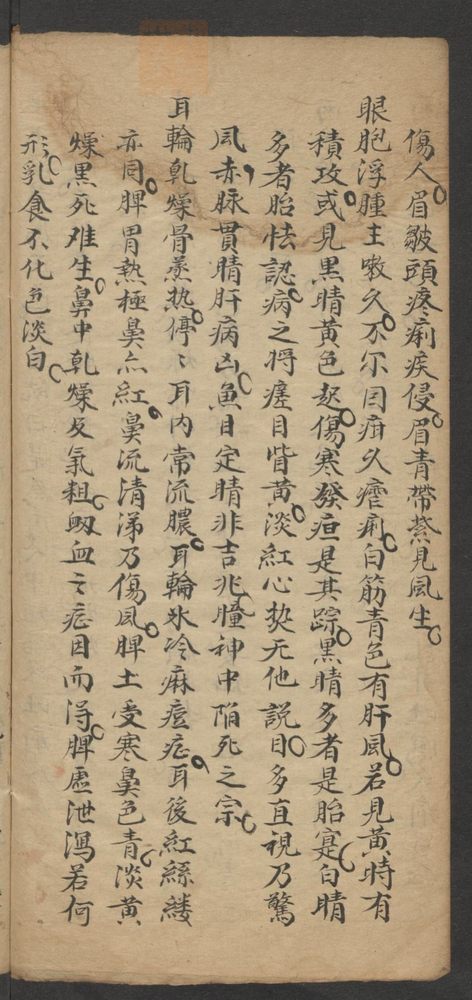 傷人。眉皺頭疼痢疾侵。眉青帶縈見風生。
眼胞浮腫主嗽久。不尔因疳久瘧痢。白筋青色有肝風。若見黃時有
積攻。或見黑睛黃色起。傷寒發疸是其踪。黑睛多者是胎寔。白睛
多者胎怯認病之。將瘥目眥黃。淡紅心热无他說。目多直視乃驚
風。赤脉貫睛肝病凶。魚目定睛非吉兆。瞳神中陷死之宗。
耳輪乾燥骨蒸热。停〻耳內常流膿。耳輪氷冷麻痘症。耳後紅絲縷
亦同。脾胃熱極鼻亦紅。鼻流清涕乃傷風。脾土受寒鼻色青。淡黃
燥黑死难生。鼻中乾燥及氣粗。衂血之症因而淂。脾虛泄瀉若何
形。乳食不化色淡白。